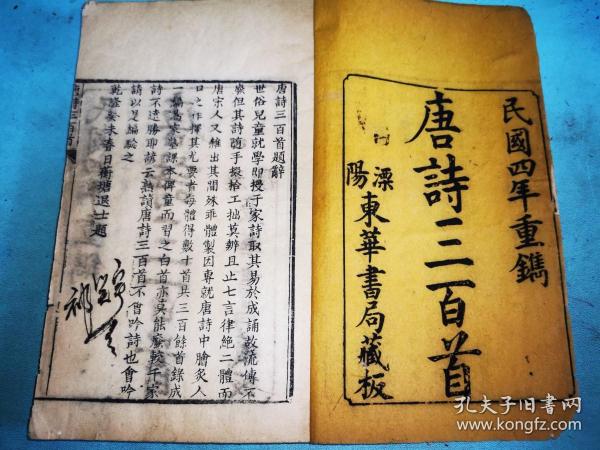 民國四年重鐫
唐詩三百首
溧陽
東華書局藏板
唐詩三百首題辭
世俗兒童就學即授千家詩取其易於成誦故流傳不
廢但其詩隨手掇拾工拙莫辨且止七言律絕二體而
唐宋人又雜出其間殊乖體製因專就唐詩中膾炙人
口之作擇其尤要者每體得數十首共三百餘首錄成
一編為家塾課本俾童而習之白首亦莫能廢較千家
詩不遠勝耶諺云熟讀唐詩三百首不會吟詩也會吟
請以是編驗之
乾隆癸未春日蘅塘退士題
唐詩三百首
孔夫子旧书网
www.kongfz.com